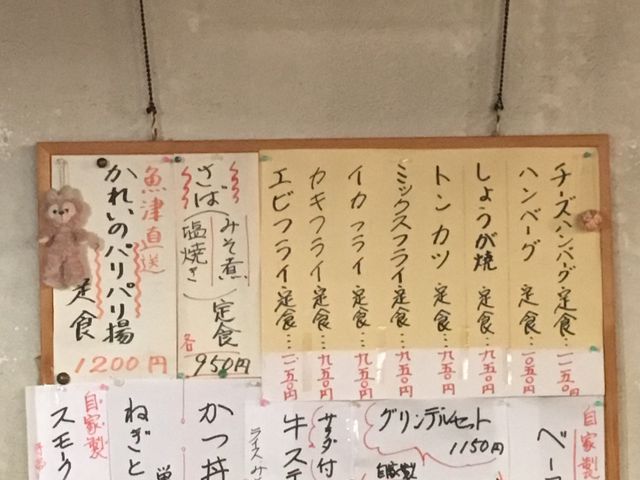 チーズハンバーグ定食…一一五0円
ハンバーグ 定食…一0五0円
しょうが焼 定食…九五0円
トンカツ 定食…九五0円
ミックスフライ定食…九五0円
イカフライ 定食…九五0円
カキフライ定食…九五0円
エビフライ定食…一一五0円
さば(みそ煮 塩焼き)定食 各950円
魚津直送
かれいのパリパリ揚
定食
1200円
自家製
ベー
グリンデルセット
1150円
自家製
サラダ付
牛ステ
かつ丼
ねぎと
自家製
スモーク